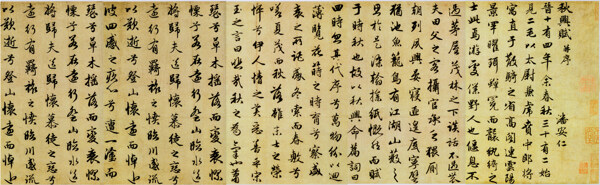 秋興賦 並序
潘安仁
晉十有四年余春秋三十有二始
見二毛以太尉掾兼虎賁中郎將
寓直于散騎之省高閣連雲陽
景罕曜珥蟬冕而襲紈綺之
士此焉游處僕野人也偃息不
過茅屋茂林之下談話不過農
夫田父之客攝官承乏猥厠
朝列夙興晏寢匪遑底寧譬
猶池魚籠鳥有江湖山藪之
思於是染翰操紙慨然而賦
于時秋也故以秋興命篇詞曰
四時忽其代序兮萬物紛以迴
薄覽花蒔之時育兮察盛
衰之所託感冬索而春敷兮
嗟夏茂而秋落雖末士之榮
悴兮伊人情之美惡善乎宋
玉之言曰悲哉秋之為氣也蕭
瑟兮草木搖落而變衰憀
慄兮若在遠行登山臨水送
將歸夫送歸懷慕徒之戀兮
遠行有羈旅之憤臨川感流
以歎逝兮登山懷遠而悼近
彼四慼之疚心兮遭一塗而
瑟兮草木搖落而變衰憀
慄兮若在遠行登山臨水送
將歸夫送歸懷慕徒之戀兮
遠行有羈旅之憤臨川感流
以歎逝兮登山懷遠而悼近